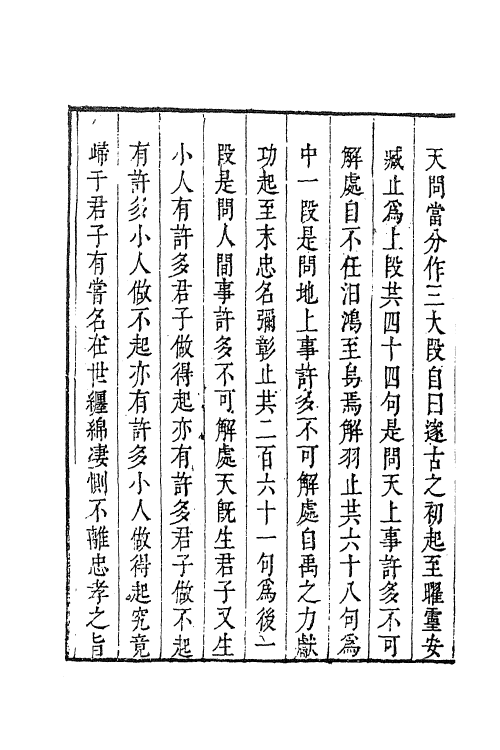 天問當分作三大段自曰遂古之初起至曜靈安
臧止爲上段共四十四句是問天上事許多不可
解處自不任汩鴻至烏焉解羽止共六十八句爲
中一段是問地上事許多不可解處自禹之力獻
功起至末忠名彌彰止共二百六十一句爲後一
段是問人間事許多不可解處天旣生君子又生
小人有許多君子做得起亦有許多君子做不起
有許多小人做不起亦有許多小人做得起究竟
歸于君子有嘗名在世纏綿凄惻不離忠孝之旨